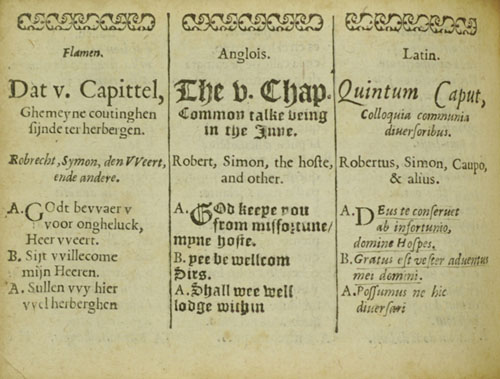 Flamen.
Dat v. Capittel,
Ghemeyne coutinghen
sijnde ter herbergen.
Robrecht, Symon, den VVeert,
ende andere.
A. GOdt bevvaer v
voor ongheluck,
Heer vveert.
B. Sijt vvillecome
mijn Heeren.
A. Sullen vvy hier
vvel herberghen
Anglois.
The v. Chap.
Common talke being
in the Inne.
Robert, Simon, the hoste,
and other.
A. GOd keepe you
from misfortune/
myne hoste.
B. yee be wellcom
Sirs.
A. Shall wee well
lodge within
Latin.
Quintum Caput,
Colloquia communia
diversoribus.
Robertus, Simon, Caupo,
& alius.
A. DEus te conservet
ab infortunio,
domine Hospes.
B. Gratus est vester adventus
mei domini.
A. Possumus ne hic
diversari